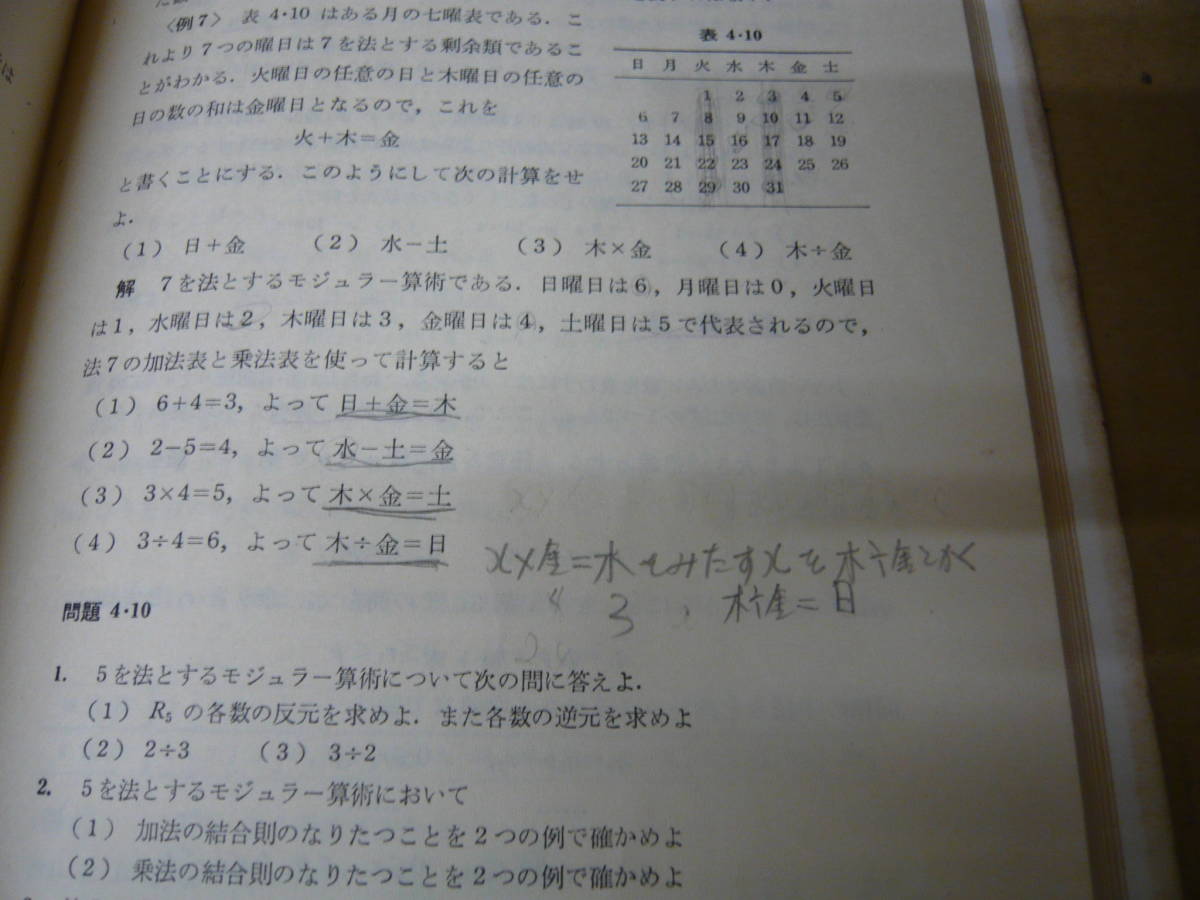 〈例7〉 表4・10はある月の七曜表である．こ
れより7つの曜日は7を法とする剰余類であるこ
とがわかる．火曜日の任意の日と木曜日の任意の
日の数の和は金曜日となるので，これを
火＋木＝金
と書くことにする．このようにして次の計算をせ
よ．
表 4・10
日 月 火 水 木 金 土
1 2 3 4 5
6 7 8 9 10 11 12
13 14 15 16 17 18 19
20 21 22 23 24 25 26
27 28 29 30 31
(1) 日＋金 (2) 水－土 (3) 木×金 (4) 木÷金
解 7を法とするモジュラー算術である．日曜日は6，月曜日は0，火曜日
は1，水曜日は2，木曜日は3，金曜日は4，土曜日は5で代表されるので，
法7の加法表と乗法表を使って計算すると
(1) 6+4=3，よって 日＋金＝木
(2) 2－5=4，よって 水－土＝金
(3) 3×4=5，よって 木×金＝土
(4) 3÷4=6，よって 木÷金＝日
x×金＝木をみたすxを木÷金とかく
3，木÷金＝日
問題 4・10
1. 5を法とするモジュラー算術について次の問に答えよ．
(1) R₅ の各数の反元を求めよ．また各数の逆元を求めよ
(2) 2÷3 (3) 3÷2
2. 5を法とするモジュラー算術において
(1) 加法の結合則のなりたつことを2つの例で確かめよ
(2) 乗法の結合則のなりたつことを2つの例で確かめよ